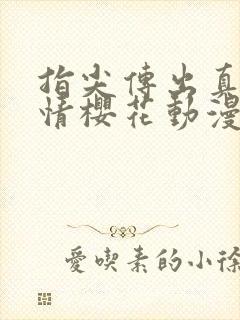 指尖傳出真
情櫻花動漫
愛喫素的小徐